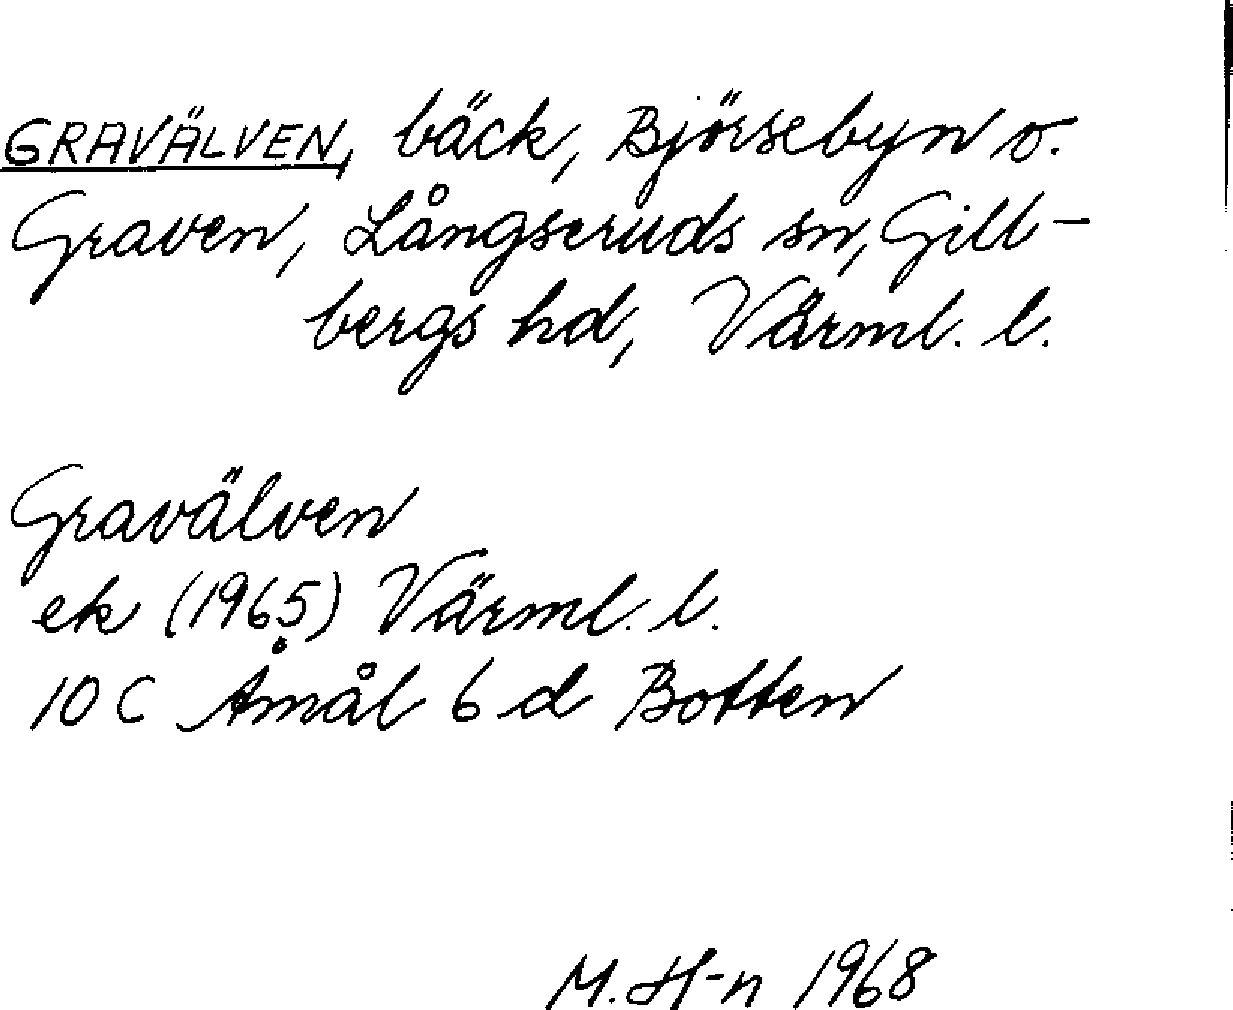 GRAVÄLVEN, bäck, Björsebyn o.
Graven, Långseruds sn, Gill-
bergs hd, Värml. l.
Gravälven
ek (1965) Värml. l.
10 C Åmål 6 d Botten
M. H-n 1968